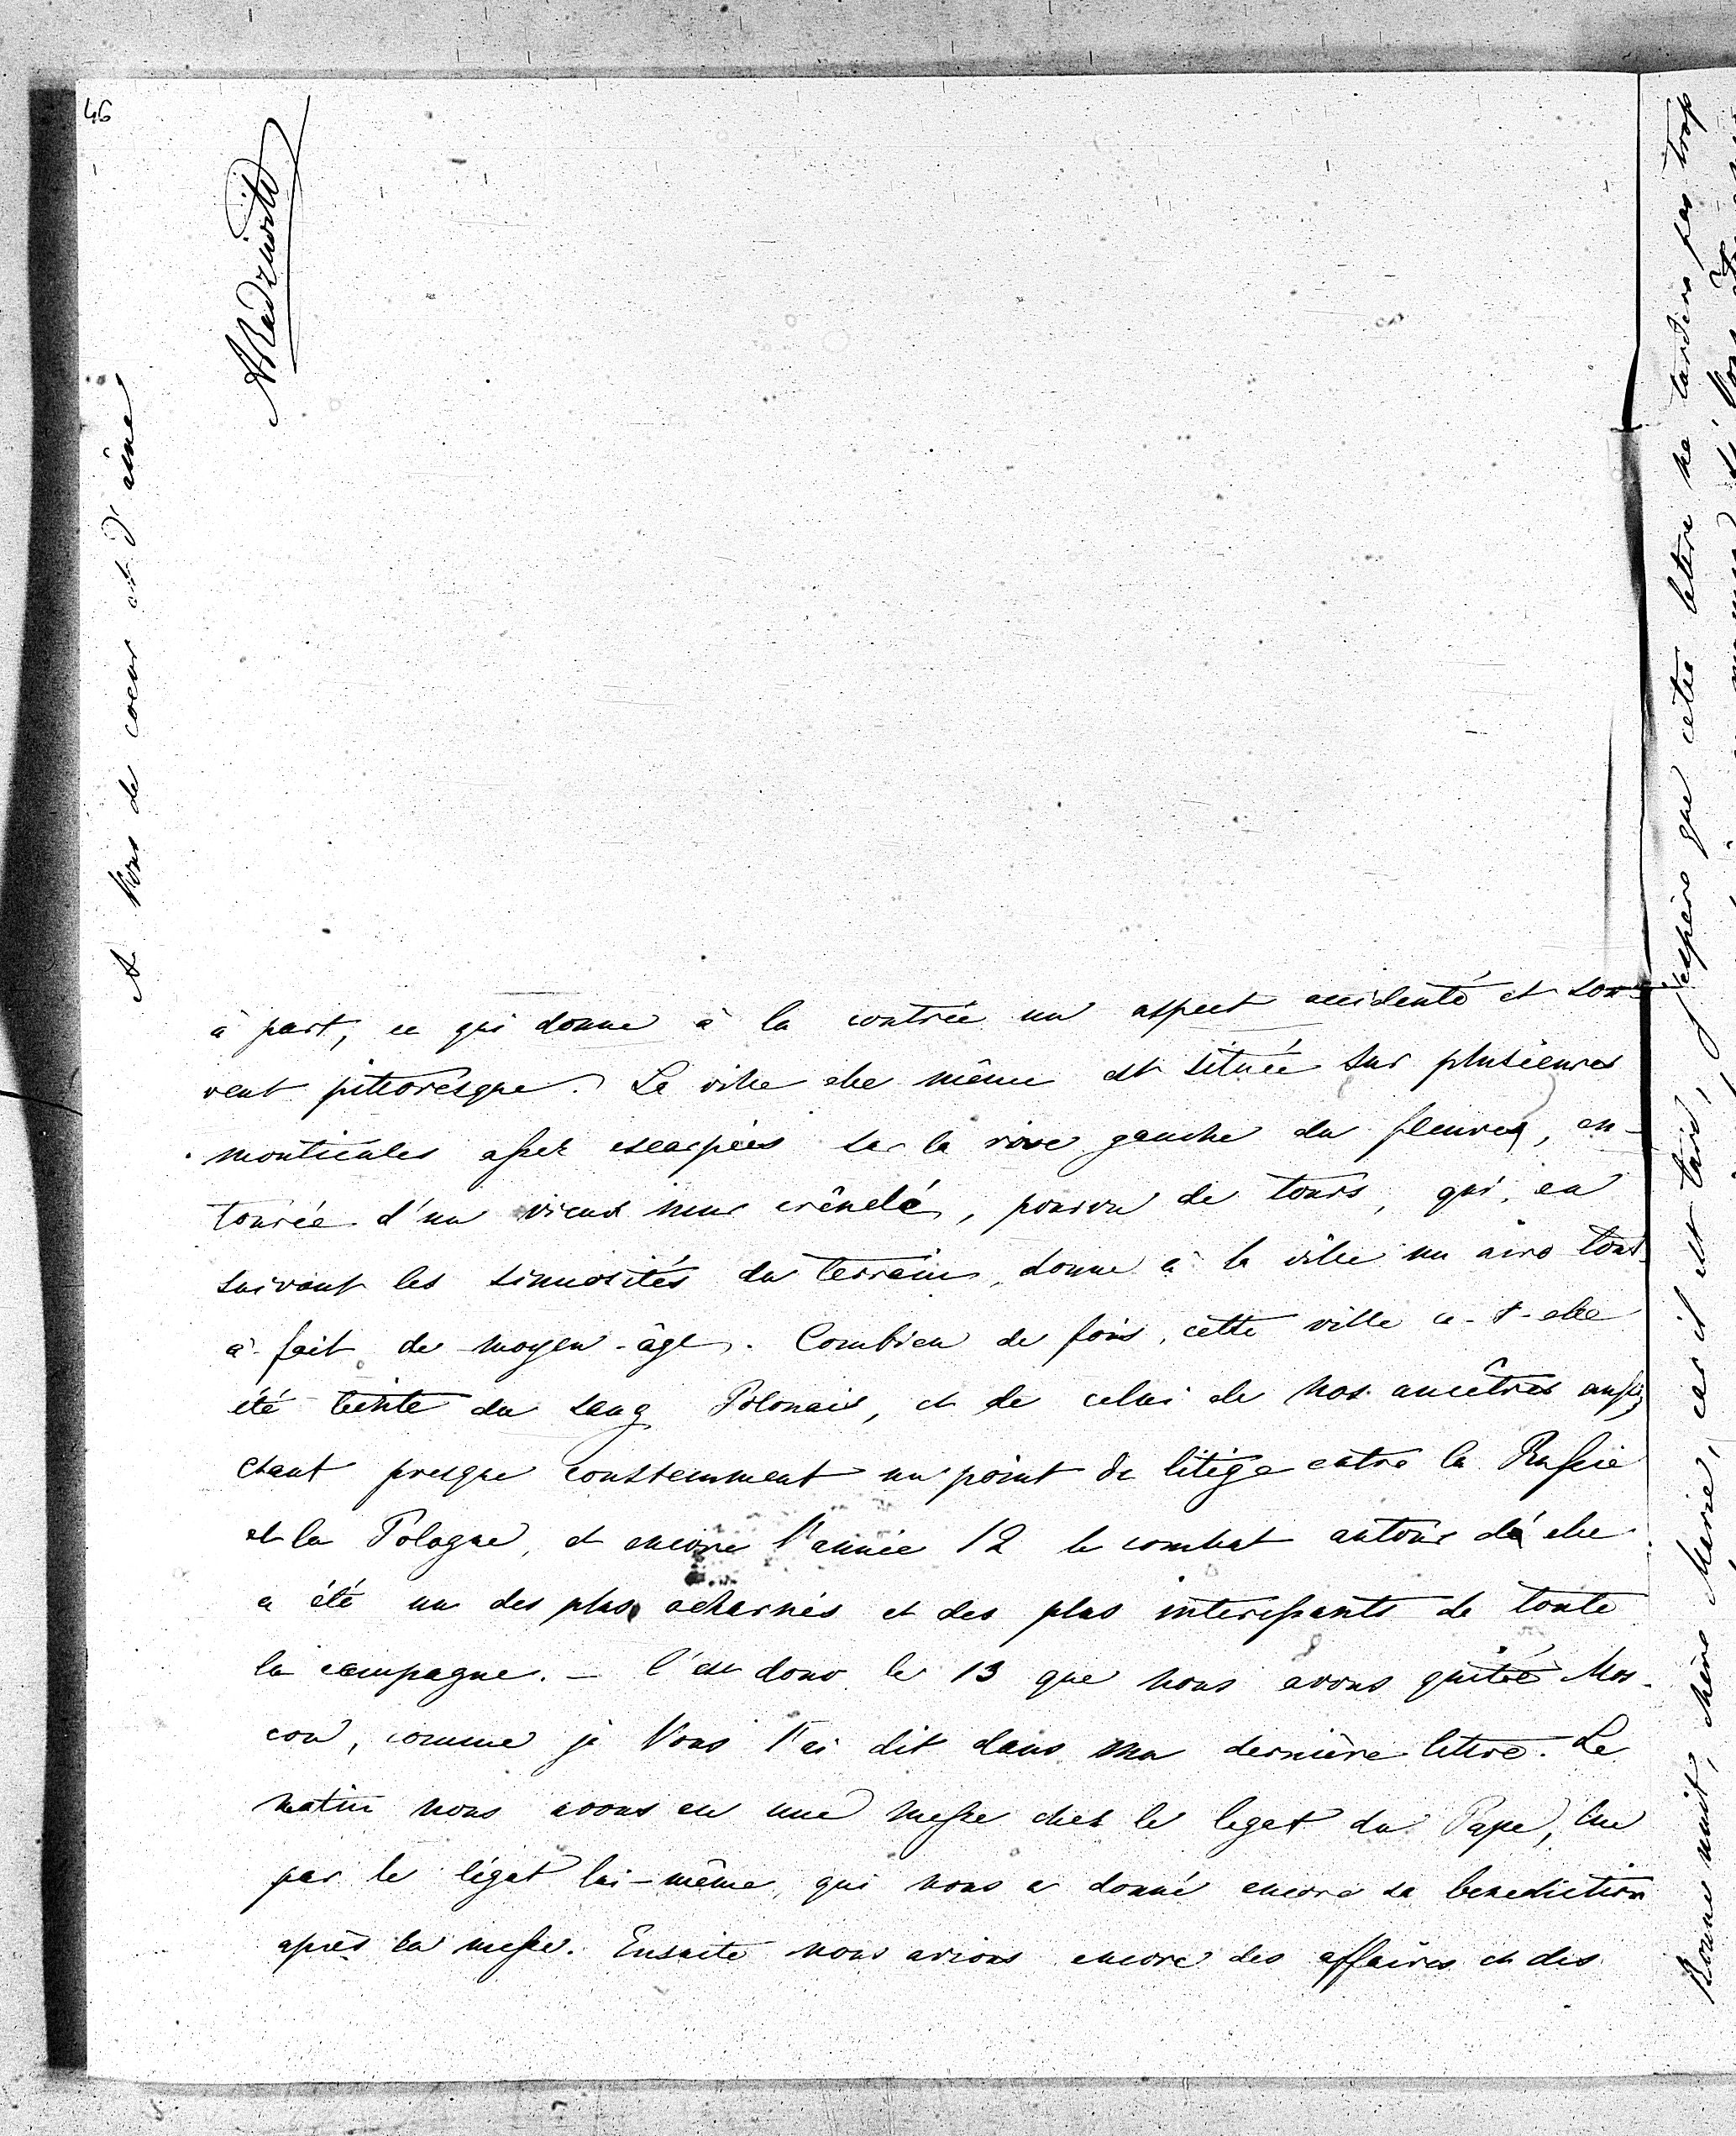 46
à part, ce qui donne à la contrée un aspect accidenté et sou-
vent pittoresque. La ville elle même est située sur plusieures
monticules assez escarpées sur la rive gauche du fleuve, en-
tourée d'un vieux mur crênelé, pourvu de tours, qui, en
suivant les sinuosités du terrain, donne à la ville un aire tout
à-fait de moyen-âge. Combien de fois, cette ville a-t-elle
été teinte du sang Polonais, et de celui de nos ancêtres aussi,
étant presque constemment un point de litige entre la Russie
et la Pologne, et encore l'année 12 le combat autour d'elle
a été un des plus acharnés et des plus interessants de toute
la campagne. – C'est donc le 13 que nous avons quitté Mos-
cou, comme je Vous l'ai dit dans ma dernière lettre. Le
matin nous avons eu une messe chez le legat du Pape, lue
par le légat lui-même, qui nous a donné encore sa benediction
après la messe. Ensuite nous avions encore des affaires et des
A Vous de coeur et d'âme
ARadziwill
Bonne nuit, chère Marie, car il est tard, j'espère que cette lettre ne tardera pas trop